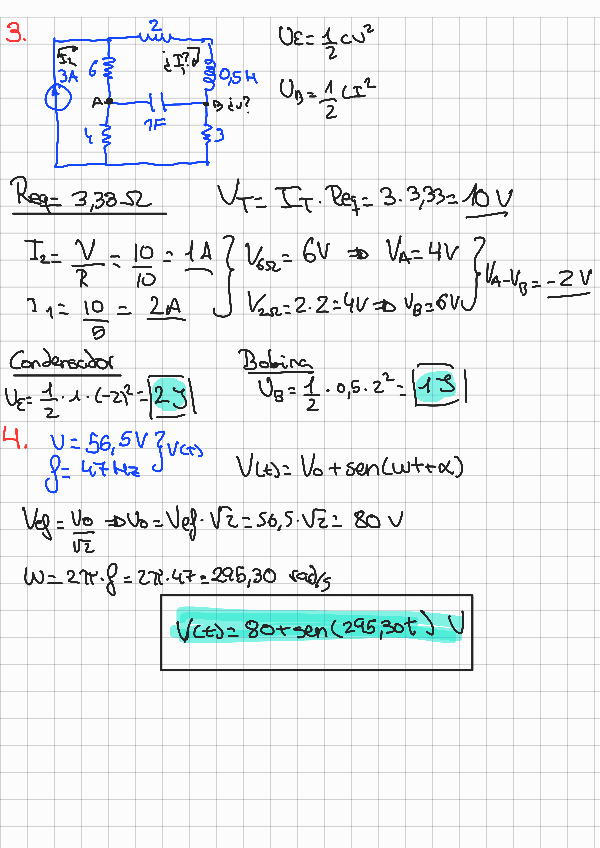 3.
2
I₂
3A
6
¿I₁?
0,5H
A
B ¿v?
1F
4
3
Uε = 1/2 cv²
U_B = 1/2 LI²
Req = 3,33Ω
V_T = I_T · Req = 3 · 3,33 = 10 V
I₂ = V/R = 10/10 = 1 A
V₆Ω = 6V ⇒ V_A = 4V
I₁ = 10/5 = 2A
V₂Ω = 2·2 = 4V ⇒ V_B = 6V
V_A - V_B = -2 V
Condensador
Uε = 1/2 · 1 · (-2)² = 2J
Bobina
U_B = 1/2 · 0,5 · 2² = 1J
4.
U = 56,5V
f = 47 Hz
V(t)
V(t) = V₀ + sen(wt + α)
Vef = V₀/√2 ⇒ V₀ = Vef · √2 = 56,5 · √2 = 80 V
W = 2π · f = 2π · 47 = 295,30 rad/s
V(t) = 80 + sen(295,30t) V